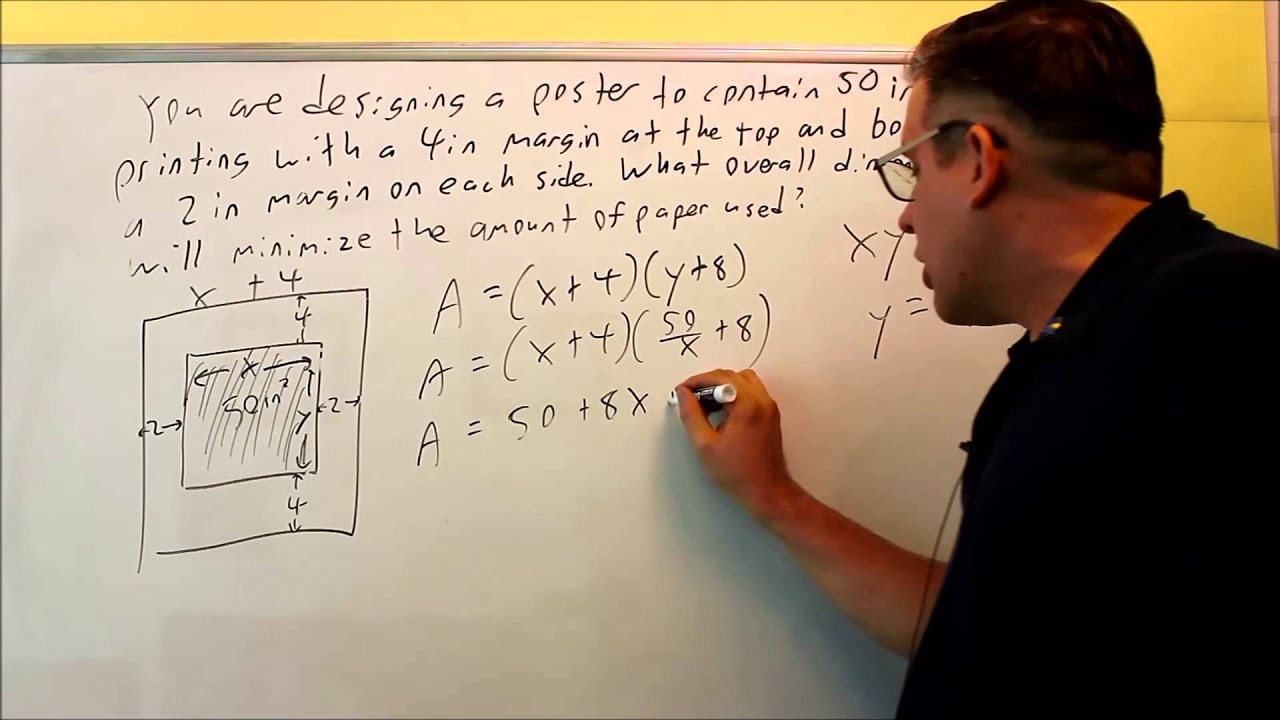 You are designing a poster to contain 50
printing with a 4 in margin at the top and
a 2 in margin on each side. What overall
will minimize the amount of paper used?
x + 4
4
x
50 in²
y
2
2
4
A = (x+4)(y+8)
A = (x+4)(50/x + 8)
A = 50 + 8x
xy
y =